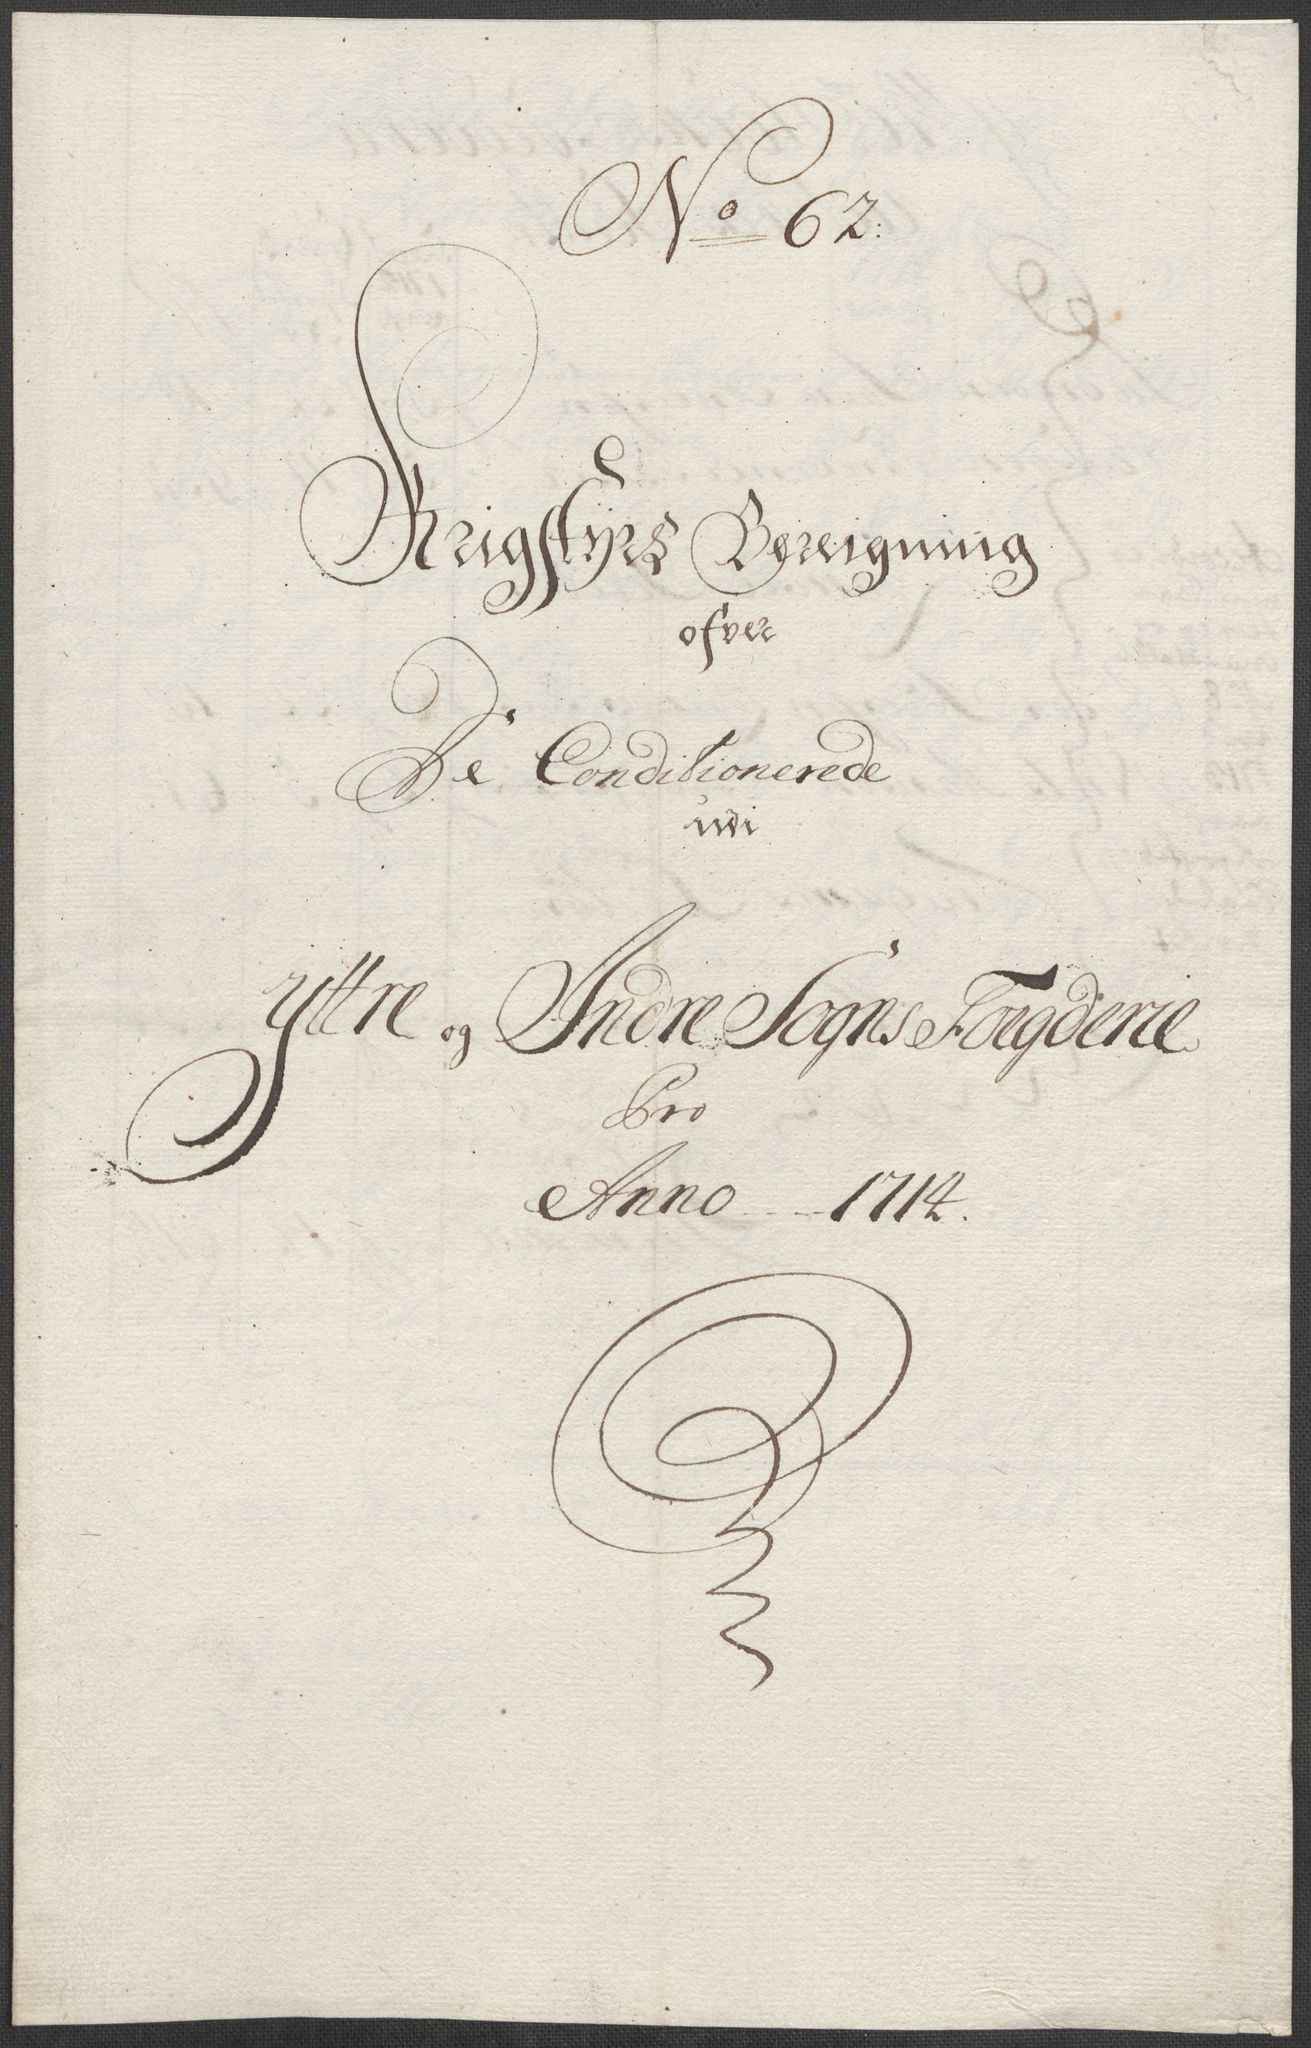 No 62:
Krigstÿrs Bereigning
ofver
De Conditionerede
udi
Yttre og Indre Sogns Foegderie
Pro
Anno 1714.